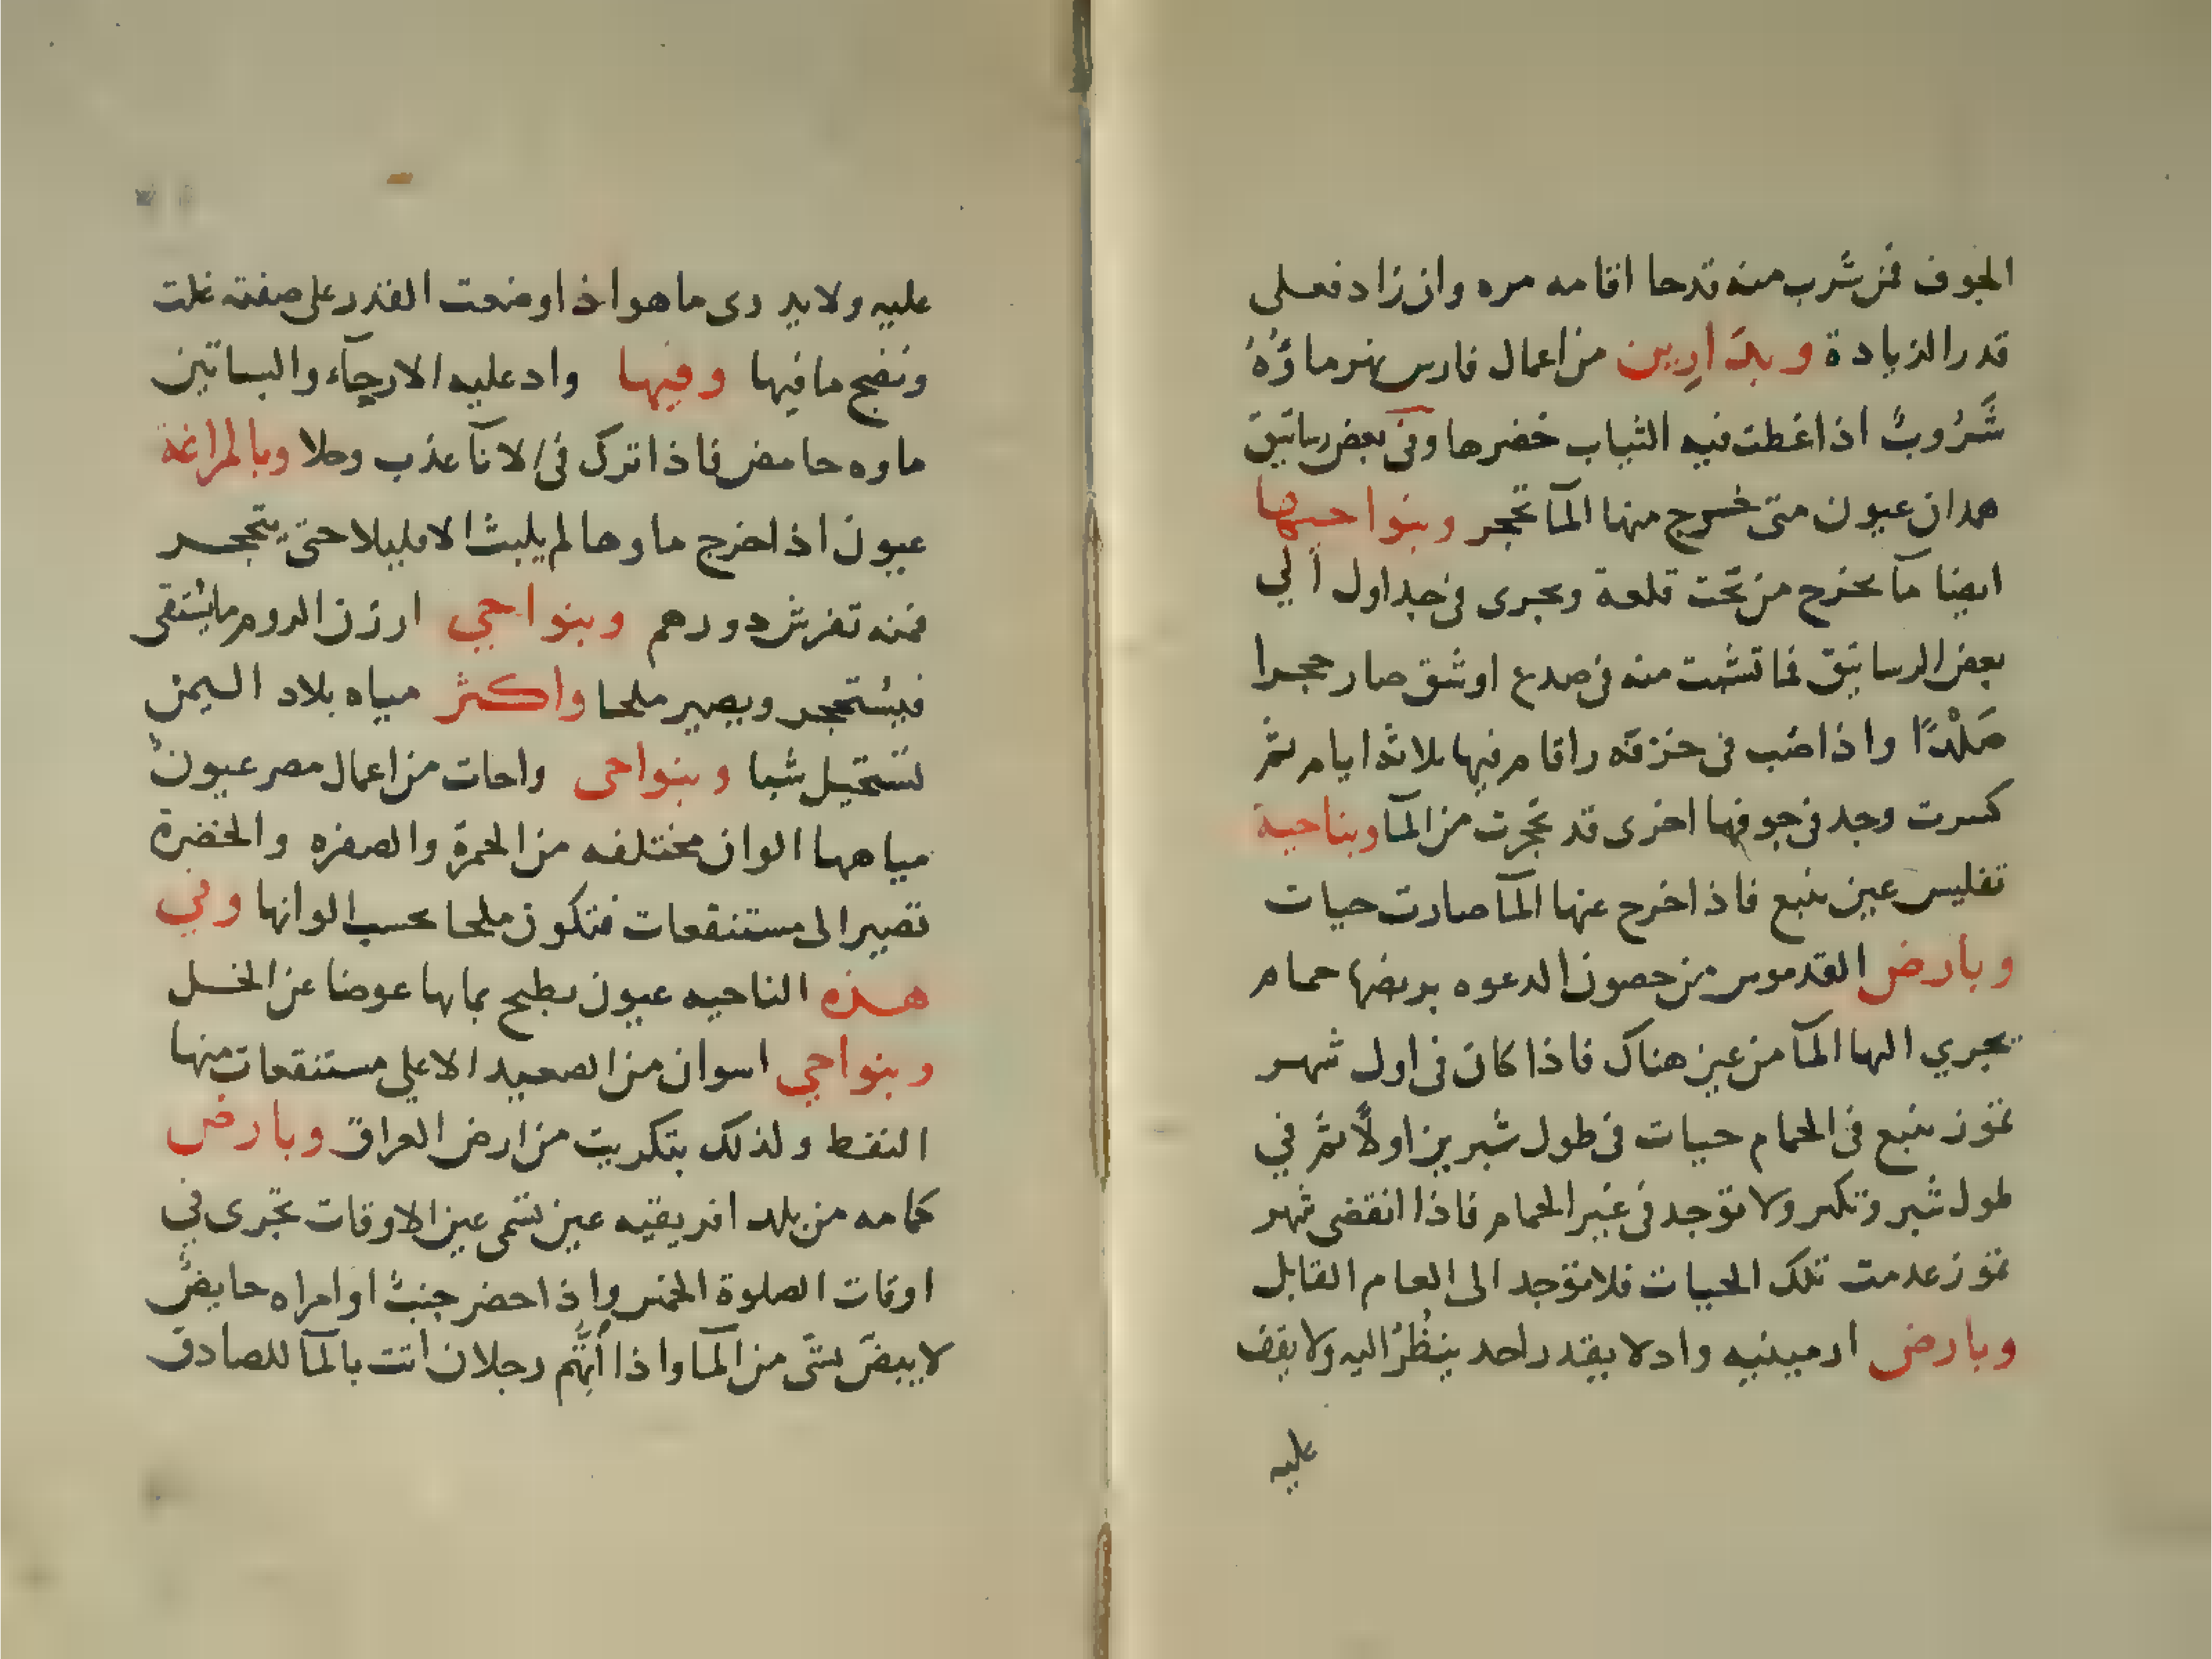 الجوف فمن شرب منه قدحا اقامه مره وان زاد فعلى
قدر الزيادة وبدَارِين من اعمال فارس نهر ماؤهُ
شَرُوبٌ اذا غطت فيه الثياب خضرها وفى بعض رساتيق
همدان عيون متى خرج منها المآ تحجر وبنواحيها
ايضا مآ يخرج من تحت قلعة ويجرى فى جداول الي
بعض الرساتيق فما تشبت منه فى صدع او شق صار حجرا
صَلْدًا واذا صب فى خزفه واقام فيها ثلاثه ايام ثم
كسرت وجد فى جوفها اخرى قد تحجرت من المآ وبناحية
تفليس عين تنبع فاذا اخرج عنها المآ صارت حيات
وبارض القدموس من حصون الدعوه بربضها حمام
يجري اليها المآ من عين هناك فاذا كان فى اول شهر
تموز ينبع فى الحمام حيات فى طول شبرين اولاً ثم في
طول شبر وتكثر ولا توجد فى غير الحمام فاذا انقضى شهر
تموز عدمت تلك الحيات فلا توجد الى العام القابل
وبارض ارمينيه واد لا يقدر احد ينظُر اليه ولا يقف
عليه
عليه ولا يدرى ما هو اذا وضعت القدر على ضفته غلت
ونضج ما فيها وفيها واد عليه الارحآء والبساتين
ماوه حامض فاذا ترك فى الانآ عذب وحلا وبالمراغة
عيون اذا خرج ماوها لم يلبث الا قليلا حتى يتحجر
فمنه تفرش دورهم وبنواحي ارزن الروم ما يستقى
فيستحجر ويصير ملحا واكثر مياه بلاد اليمن
تستحيل شبا وبنواحى واحات من اعمال مصر عيون
مياهها الوان مختلفه من الحمرة والصفره والخضرة
تصير الى مستنقعات فتكون ملحا بحسب الوانها وفي
هذه الناحيه عيون يطبخ بمايها عوضا عن الخل
وبنواحي اسوان من الصعيد الاعلى مستنقعات منها
النفط ولذلك بتكريت من ارض العراق وبارض
كتامه من بلد افريقيه عين تسمى عين الاوقات تجرى في
اوقات الصلوة الخمس واذا حضر جنبٌ او امراه حايض
لا يبض بشى من المآ واذا اُتهم رجلان اتت بالمآ للصادق